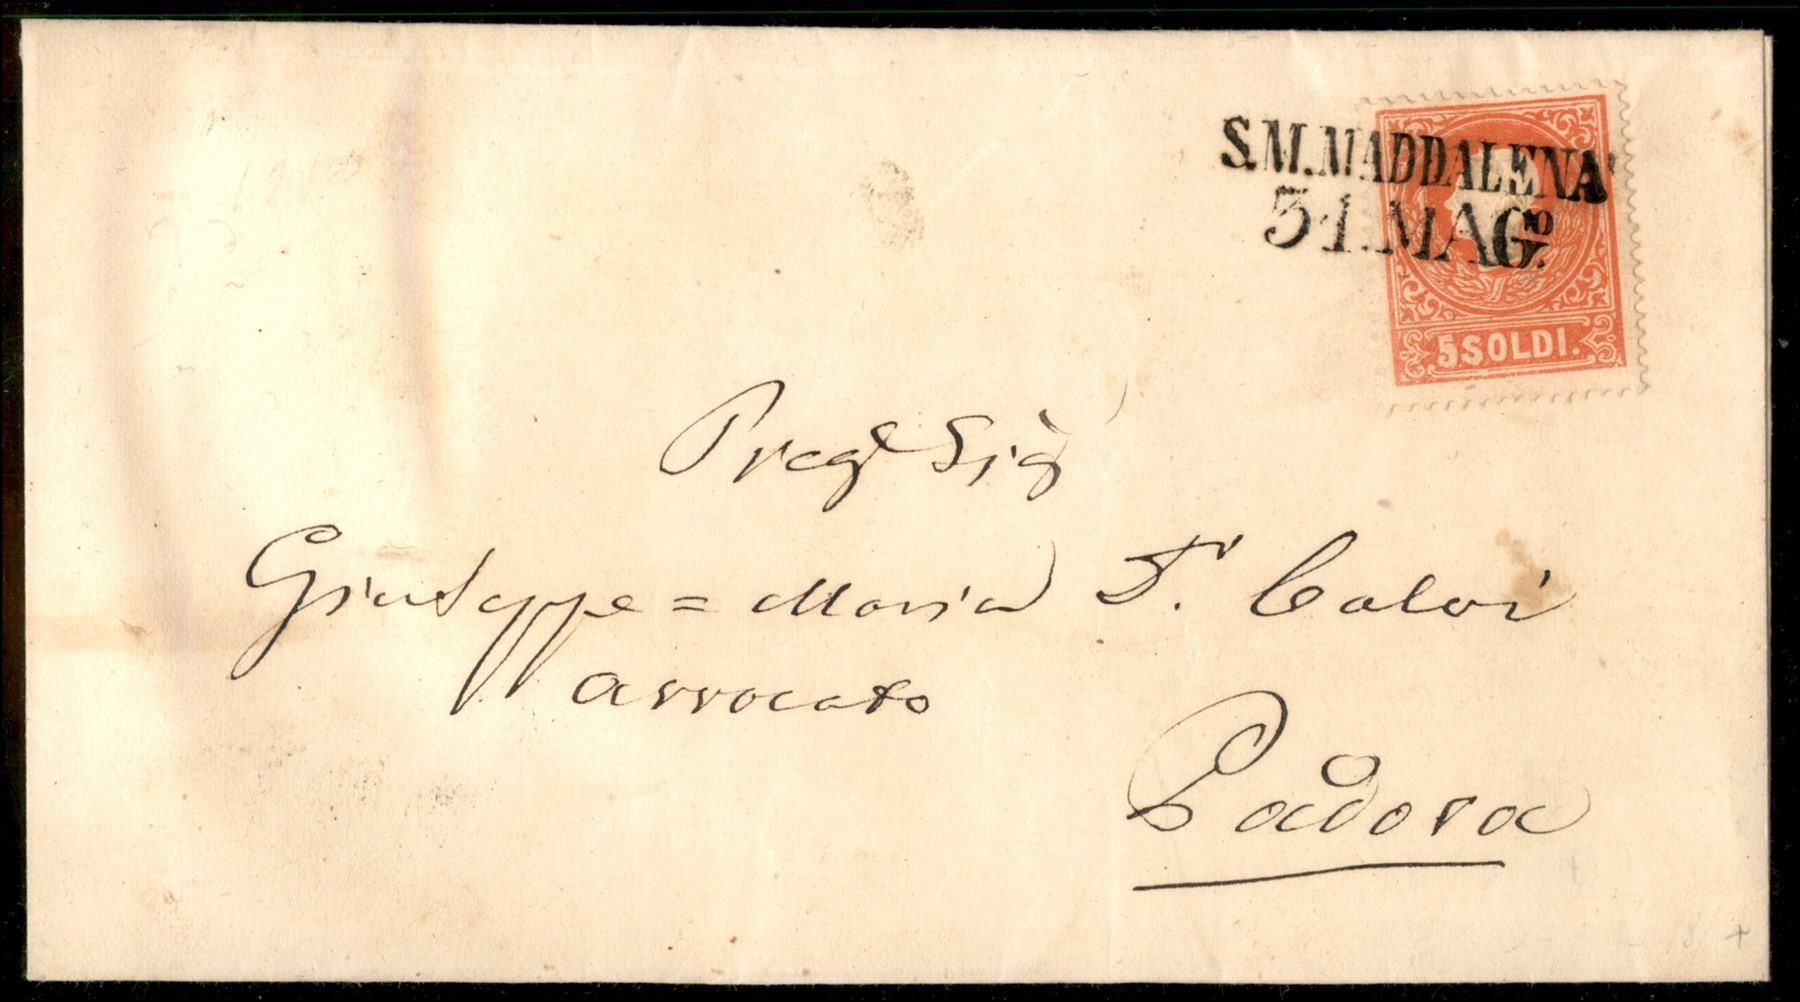 S.M.MADDALENA
31.MAGo.
5 SOLDI.
Pregl Sigr
Giuseppe = Maria Dr Calvi
avvocato
Padova